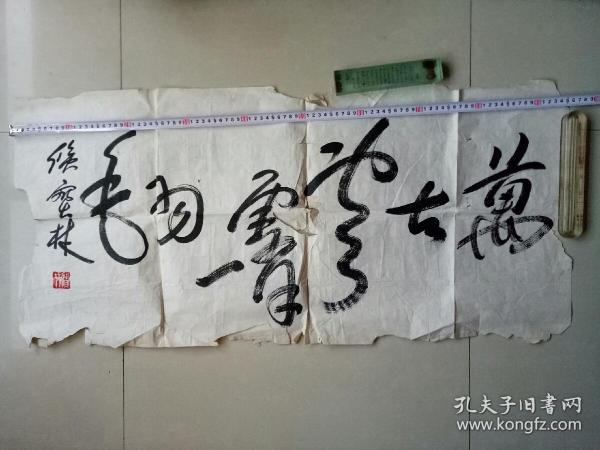 萬古雲霄一羽毛
侯寶林
孔夫子旧書网
www.kongfz.com